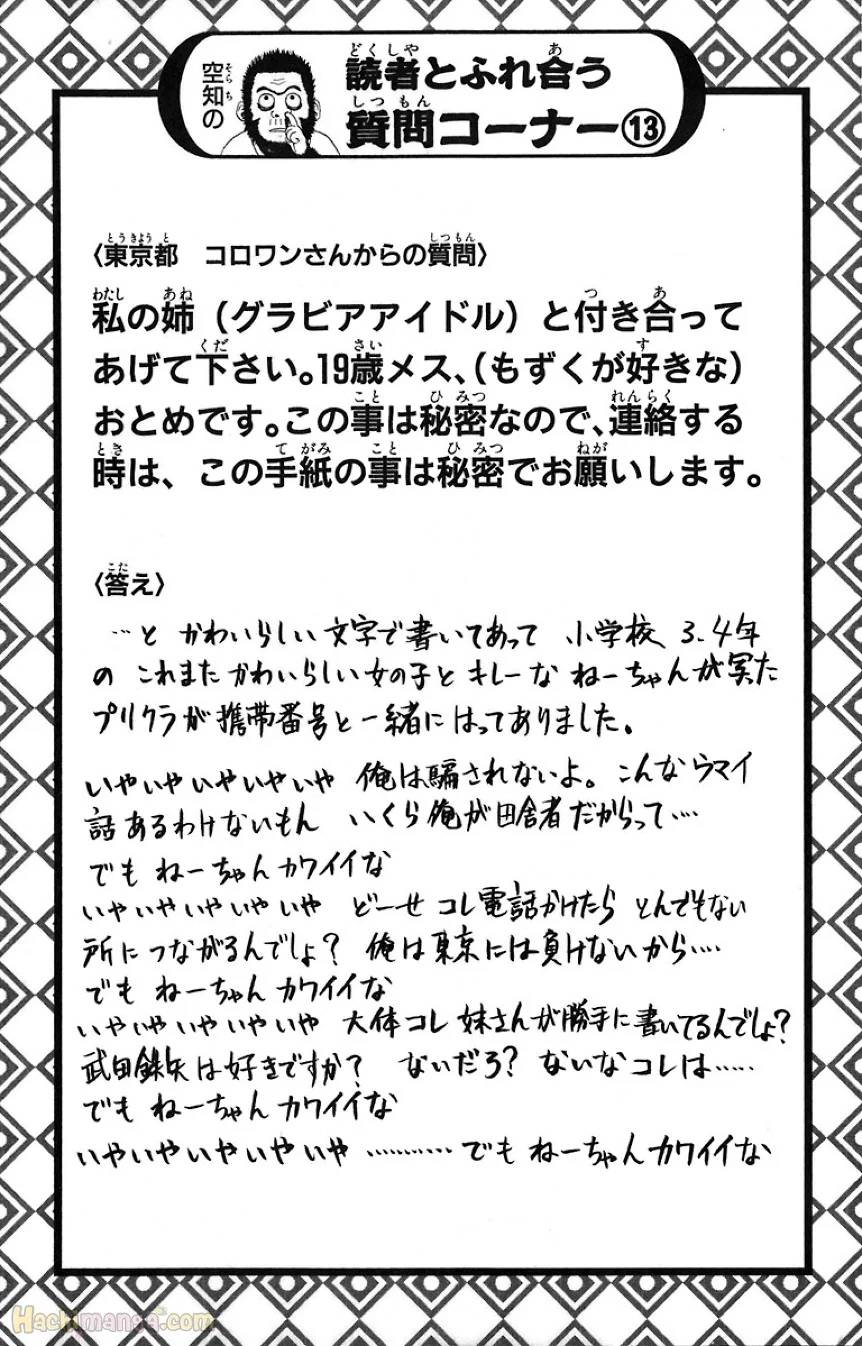 空知の
読者とふれ合う
質問コーナー⑬
〈東京都　コロワンさんからの質問〉
私の姉（グラビアアイドル）と付き合って
あげて下さい。19歳メス、（もずくが好きな）
おとめです。この事は秘密なので、連絡する
時は、この手紙の事は秘密でお願いします。
〈答え〉
…と かわいらしい文字で書いてあって 小学校 3.4年
の これまたかわいらしい女の子と キレーな ねーちゃんが写った
プリクラが携帯番号と一緒にはってありました。
いやいやいやいやいや 俺は騙されないよ。こんなウマイ
話あるわけないもん いくら俺が田舎者だからって…
でも ねーちゃんカワイイな
いやいやいやいやいや どーせ コレ電話かけたら とんでもない
所につながるんでしょ？ 俺は東京には負けないから….
でも ねーちゃん カワイイな
いやいやいやいやいや 大体コレ 妹さんが勝手に書いてるんでしょ？
武田鉄矢は好きですか？ ないだろ？ ないな コレは……
でも ねーちゃんカワイイな
いやいやいやいやいや …………でも ねーちゃんカワイイな
Hachimanga.com